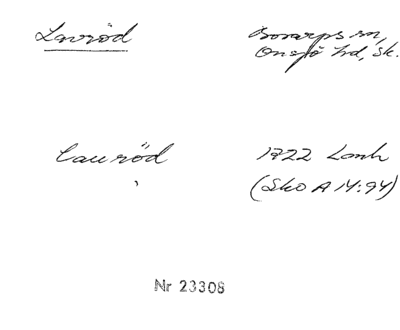 Lavröd
Bosarps sn,
Onsjö hd, Sk.
Lauröd
1722 Lanh
(Sko A 14:94)
Nr 23308